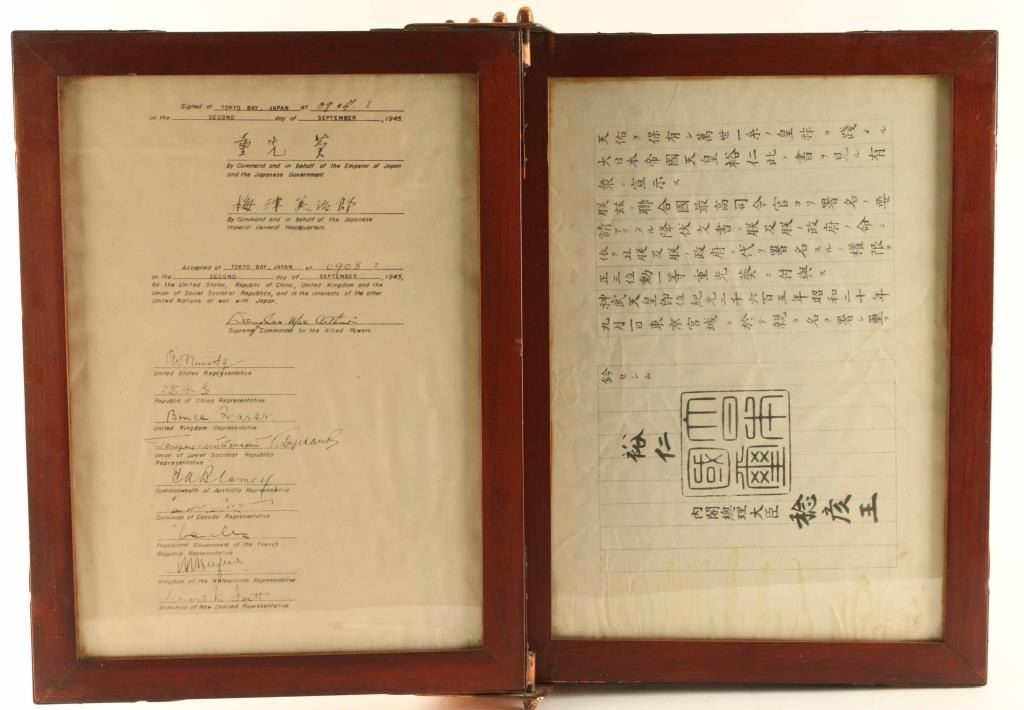 Signed at TOKYO BAY, JAPAN at 0904 I
on the SECOND day of SEPTEMBER ,1945.
重光葵
By Command and in behalf of the Emperor of Japan
and the Japanese Government.
梅津美治郎
By Command and in behalf of the Japanese
Imperial General Headquarters.
Accepted at TOKYO BAY, JAPAN at 0908 I
on the SECOND day of SEPTEMBER ,1945,
for the United States, Republic of China, United Kingdom and the
Union of Soviet Socialist Republics, and in the interests of the other
United Nations at war with Japan.
Douglas MacArthur
Supreme Commander for the Allied Powers.
C.W. Nimitz
United States Representative
徐永昌
Republic of China Representative
Bruce Fraser
United Kingdom Representative
Union of Soviet Socialist Republics
Representative
T.A. Blamey
Commonwealth of Australia Representative
Dominion of Canada Representative
Provisional Government of the French
Republic Representative
Kingdom of the Netherlands Representative
Dominion of New Zealand Representative
天佑ヲ保有シ萬世一系ノ皇祚ヲ踐メル
大日本帝國天皇裕仁此ノ書ヲ見ル有
衆ニ宣示ス
朕茲ニ聯合國最高司令官ヨリ署名ノ要
請アリタル降伏文書ニ朕及朕ノ政府ノ命ニ
依リ且朕及朕ノ政府ニ代リ署名スルノ權限ヲ
正三位勳一等重光葵ニ付與ス
神武天皇即位紀元二千六百五年昭和二十年
九月一日東京宮城ニ於テ親ラ名ヲ署シ璽ヲ
鈐セシム
裕仁
大日本國璽
内閣總理大臣 稔彦王